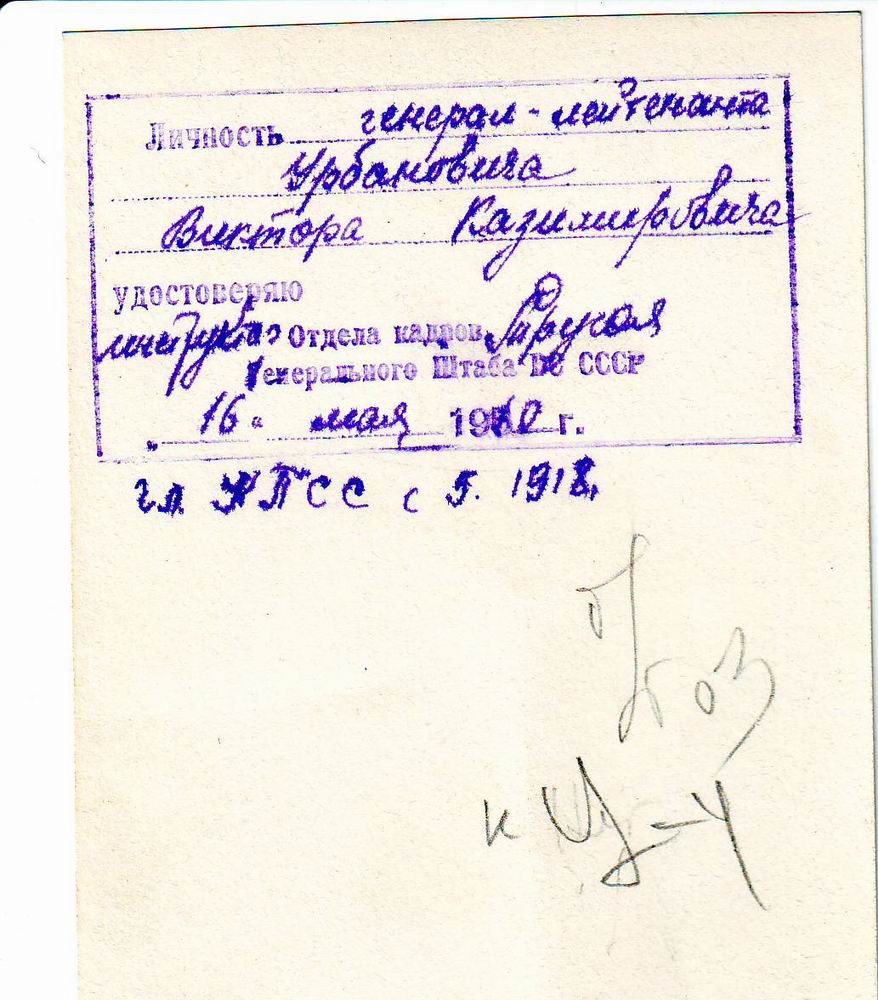 Личность генерал-лейтенанта
Урбановича
Виктора Казимировича
удостоверяю
Отдела кадров
Генерального Штаба ВС СССР
"16" мая 19 г.
чл КПСС с 5. 1918.
к У-4